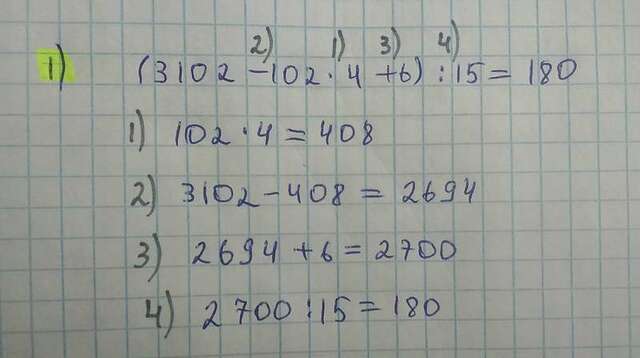 2) 1) 3) 4)
1) (3102 - 102 · 4 + 6) : 15 = 180
1) 102 · 4 = 408
2) 3102 - 408 = 2694
3) 2694 + 6 = 2700
4) 2700 : 15 = 180